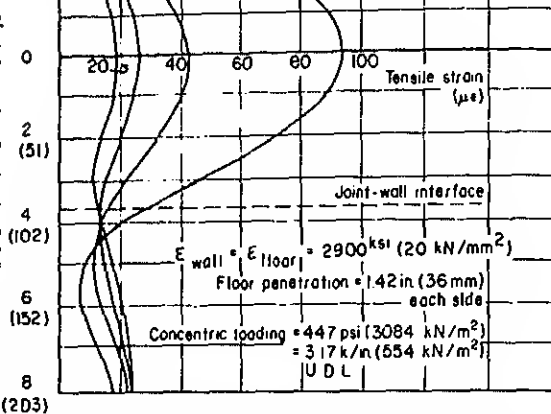 0 20 40 60 80 100
Tensile strain
(με)
2
(51)
Joint-wall interface
4
(102)
E wall = E floor = 2900 ksi (20 kN/mm²)
Floor penetration = 1.42 in. (36 mm)
each side
6
(152)
Concentric loading = 447 psi (3084 kN/m²)
= 3.17 k/in (554 kN/m²)
U D L
8
(203)